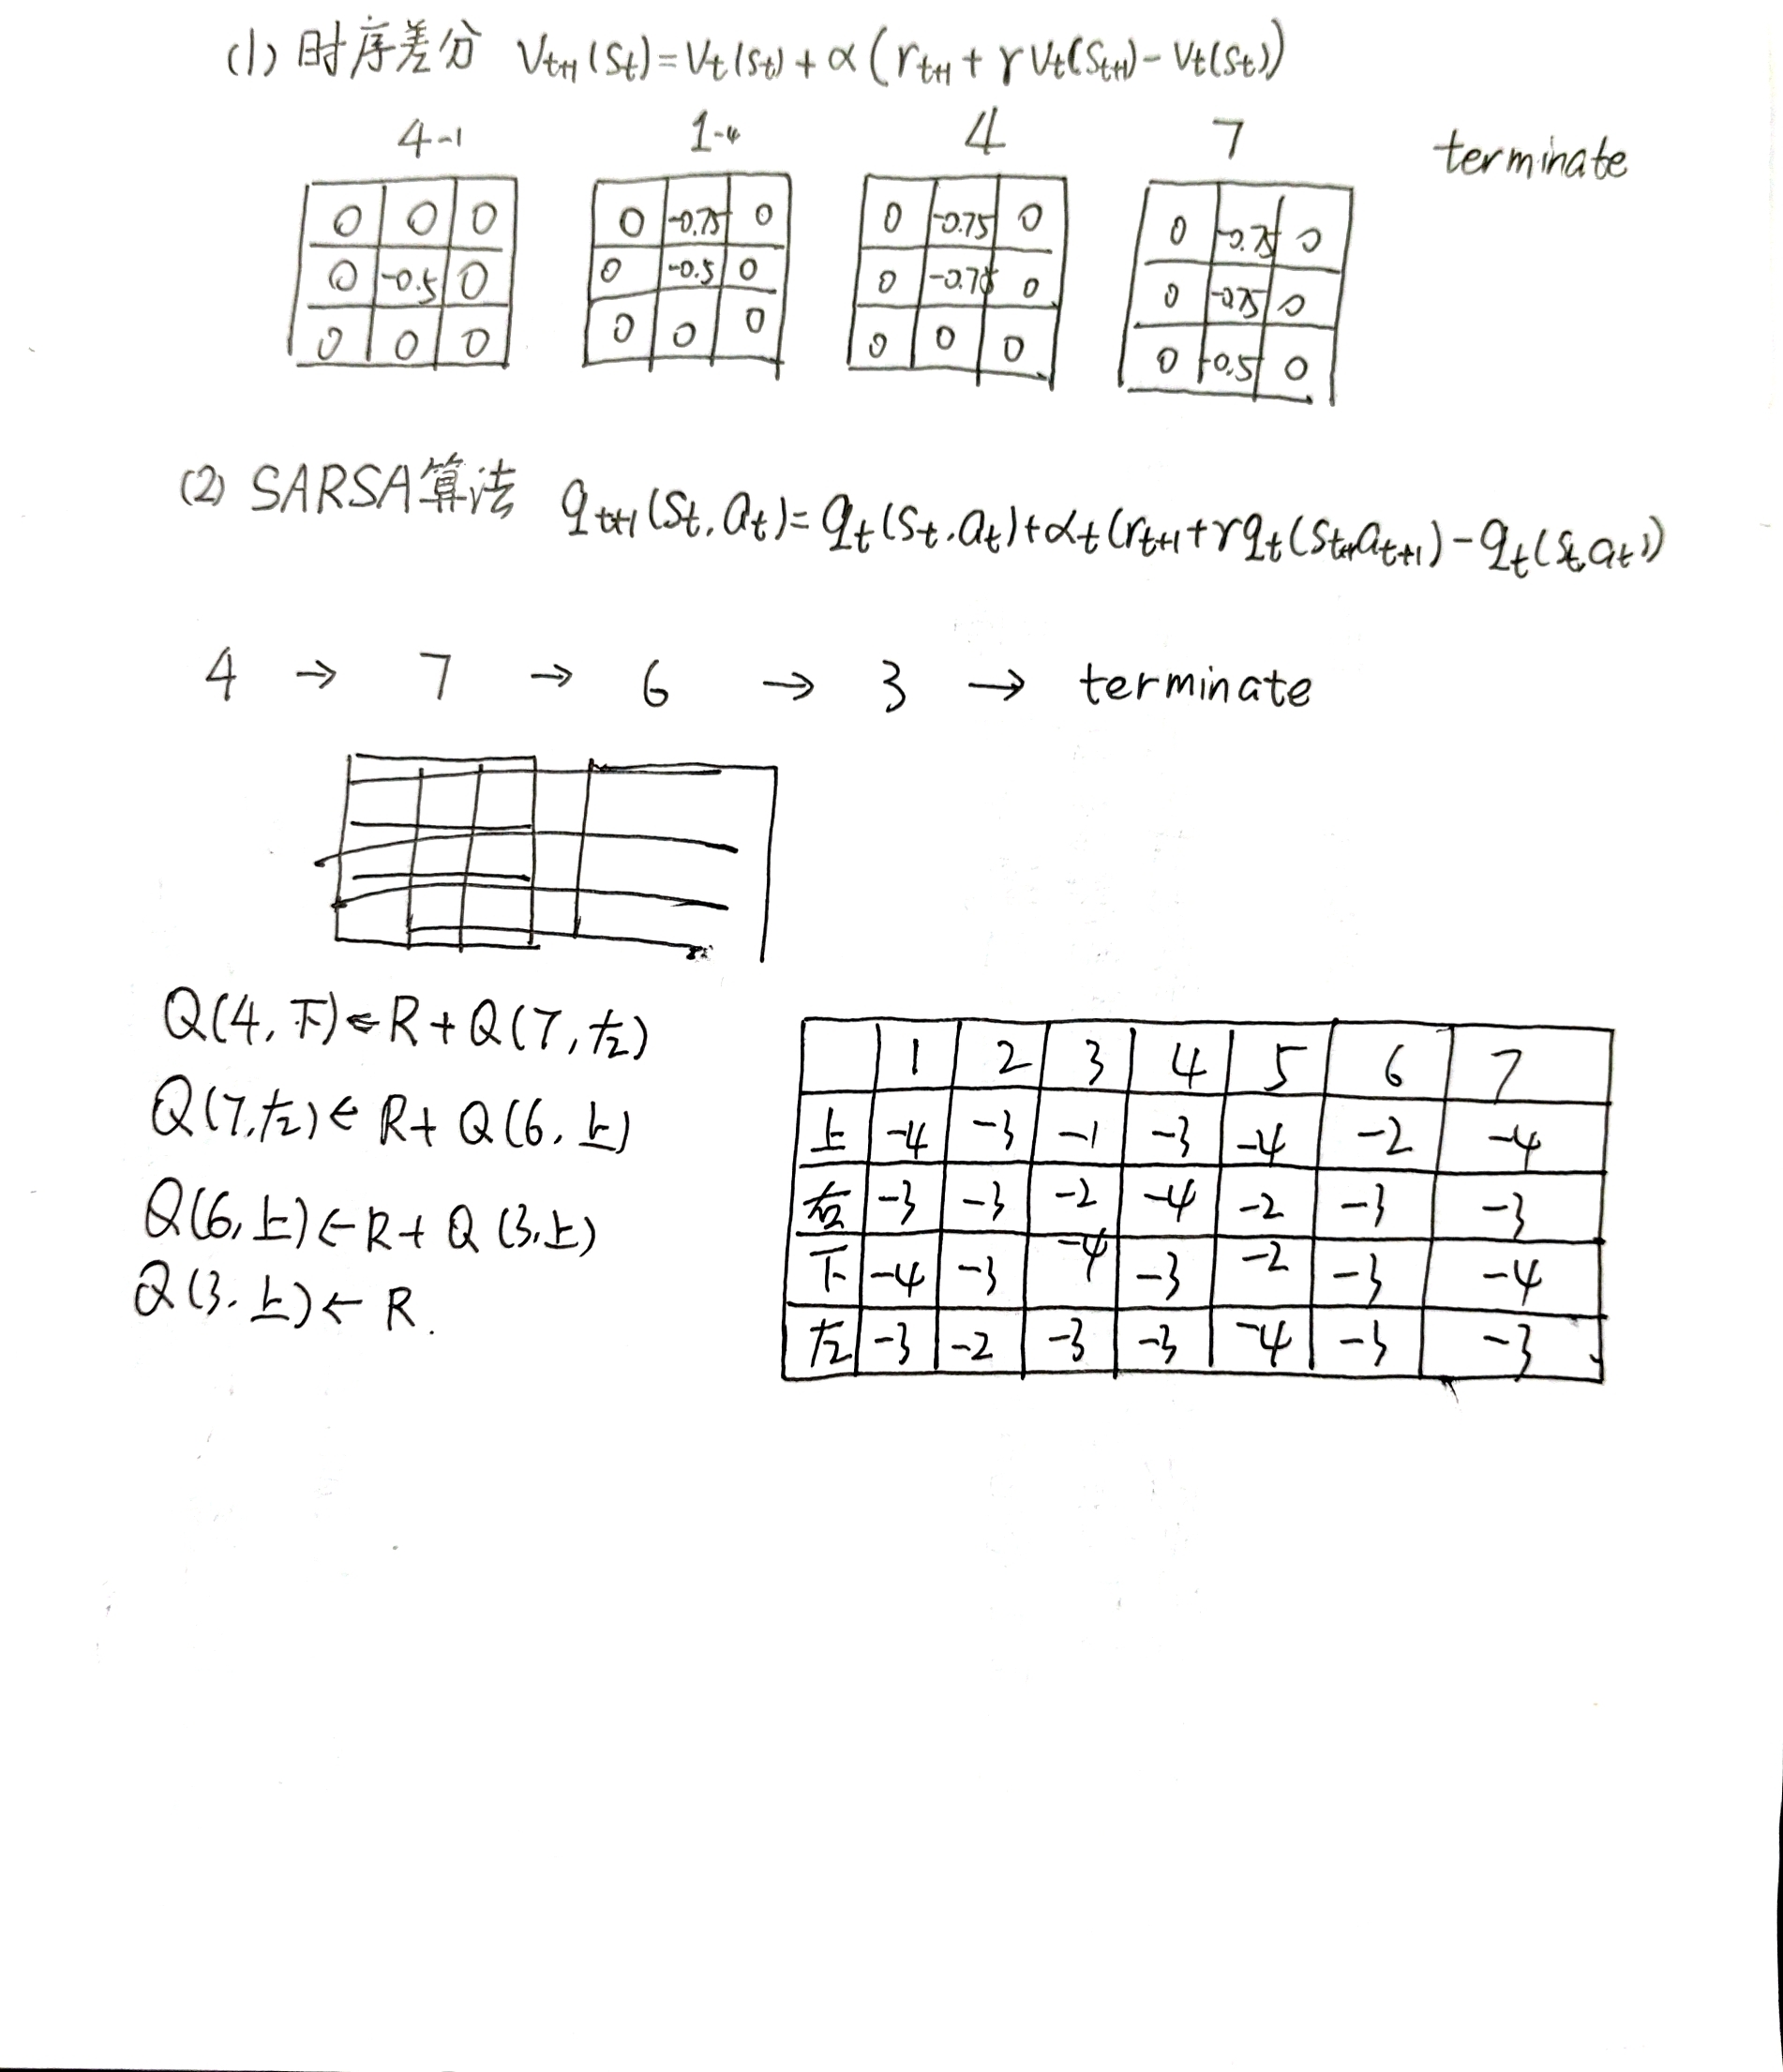 (1) 时序差分 Vt+1(St)=Vt(St)+α(rt+1+γVt(St+1)-Vt(St))
4-1 1-4 4 7 terminate
0 0 0 0 -0.75 0 0 -0.75 0 0 -0.75 0
0 -0.5 0 0 -0.5 0 0 -0.75 0 0 -0.75 0
0 0 0 0 0 0 0 0 0 0 -0.5 0
(2) SARSA算法 qt+1(St,at)=qt(St,at)+αt(rt+1+γqt(St+1,at+1)-qt(St,at))
4 → 7 → 6 → 3 → terminate
Q(4,下)←R+Q(7,左)
Q(7,左)←R+Q(6,上)
Q(6,上)←R+Q(3,上)
Q(3,上)←R.
1 2 3 4 5 6 7
上 -4 -3 -1 -3 -4 -2 -4
右 -3 -3 -2 -4 -2 -3 -3
下 -4 -3 -4 -3 -2 -3 -4
左 -3 -2 -3 -3 -4 -3 -3